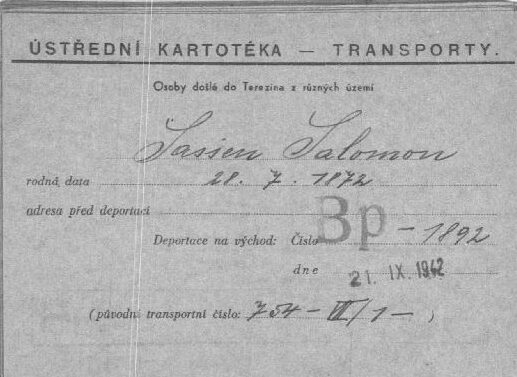 ÚSTŘEDNÍ KARTOTÉKA — TRANSPORTY.
Osoby došlé do Terezína z různých území
Sassen Salomon
rodná data 28. 7. 1872
adresa před deportací
Deportace na východ: Číslo Bp - 1892
dne 21. IX. 1942
(původní transportní číslo: 754 - VII/1 - )